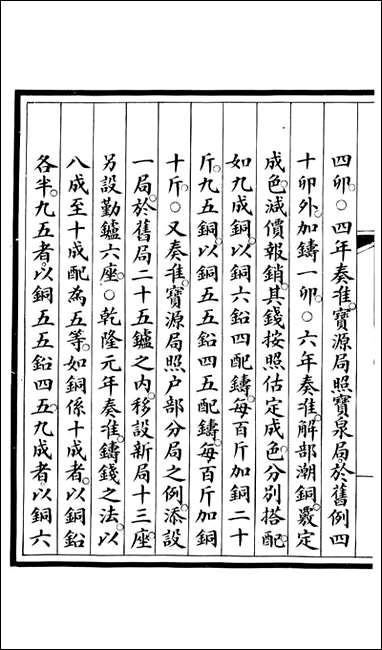 四卯。〇四年奏准。寶源局照寶泉局於舊例四
十卯外。加鑄一卯。〇六年奏准。解部潮銅。覈定
成色。減價報銷。其錢按照估定成色。分別搭配。
如九成銅。以銅六鉛四配鑄。每百斤加銅二十
斤。九五銅。以銅五五鉛四五配鑄。每百斤加銅
十斤。〇又奏准。寶源局照户部分局之例。添設
一局。於舊局二十五鑪之內。移設新局十三座。
另設勤鑪六座。〇乾隆元年奏准。鑄錢之法。以
八成至十成配為五等。如銅係十成者。以銅鉛
各半。九五者。以銅五五鉛四五。九成者。以銅六